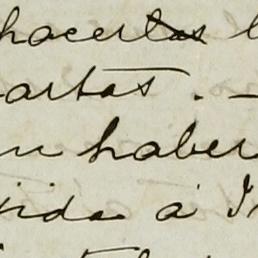 hacerlas l
artas . —
n haber
ida á I